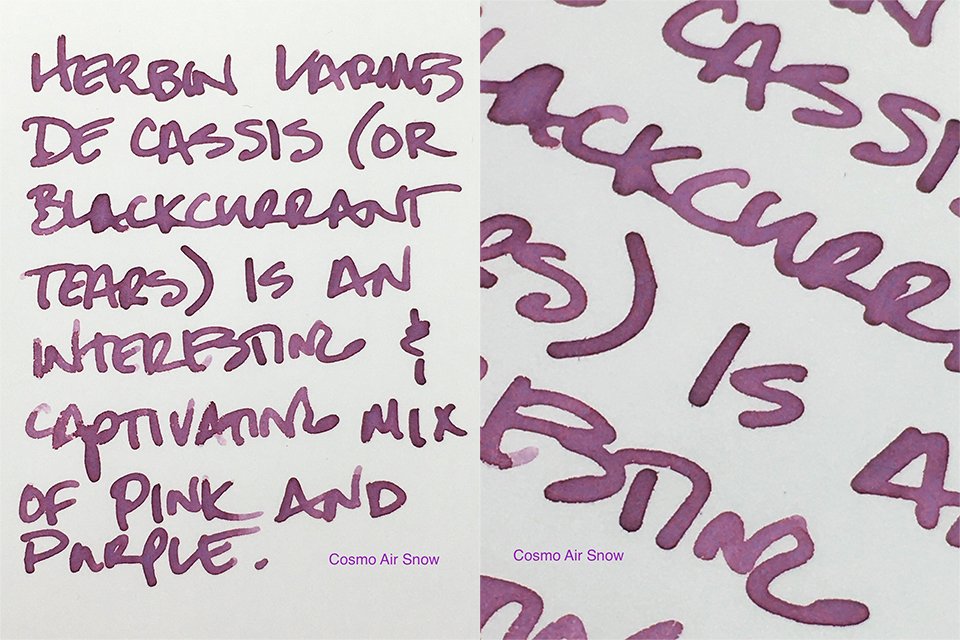 HERBIN LARMES
DE CASSIS (OR
BLACKCURRANT
TEARS) IS AN
INTERESTING &
CAPTIVATING MIX
OF PINK AND
PURPLE.
Cosmo Air Snow
CASSI
LACKCURR
RS) IS A
ESTING
Cosmo Air Snow